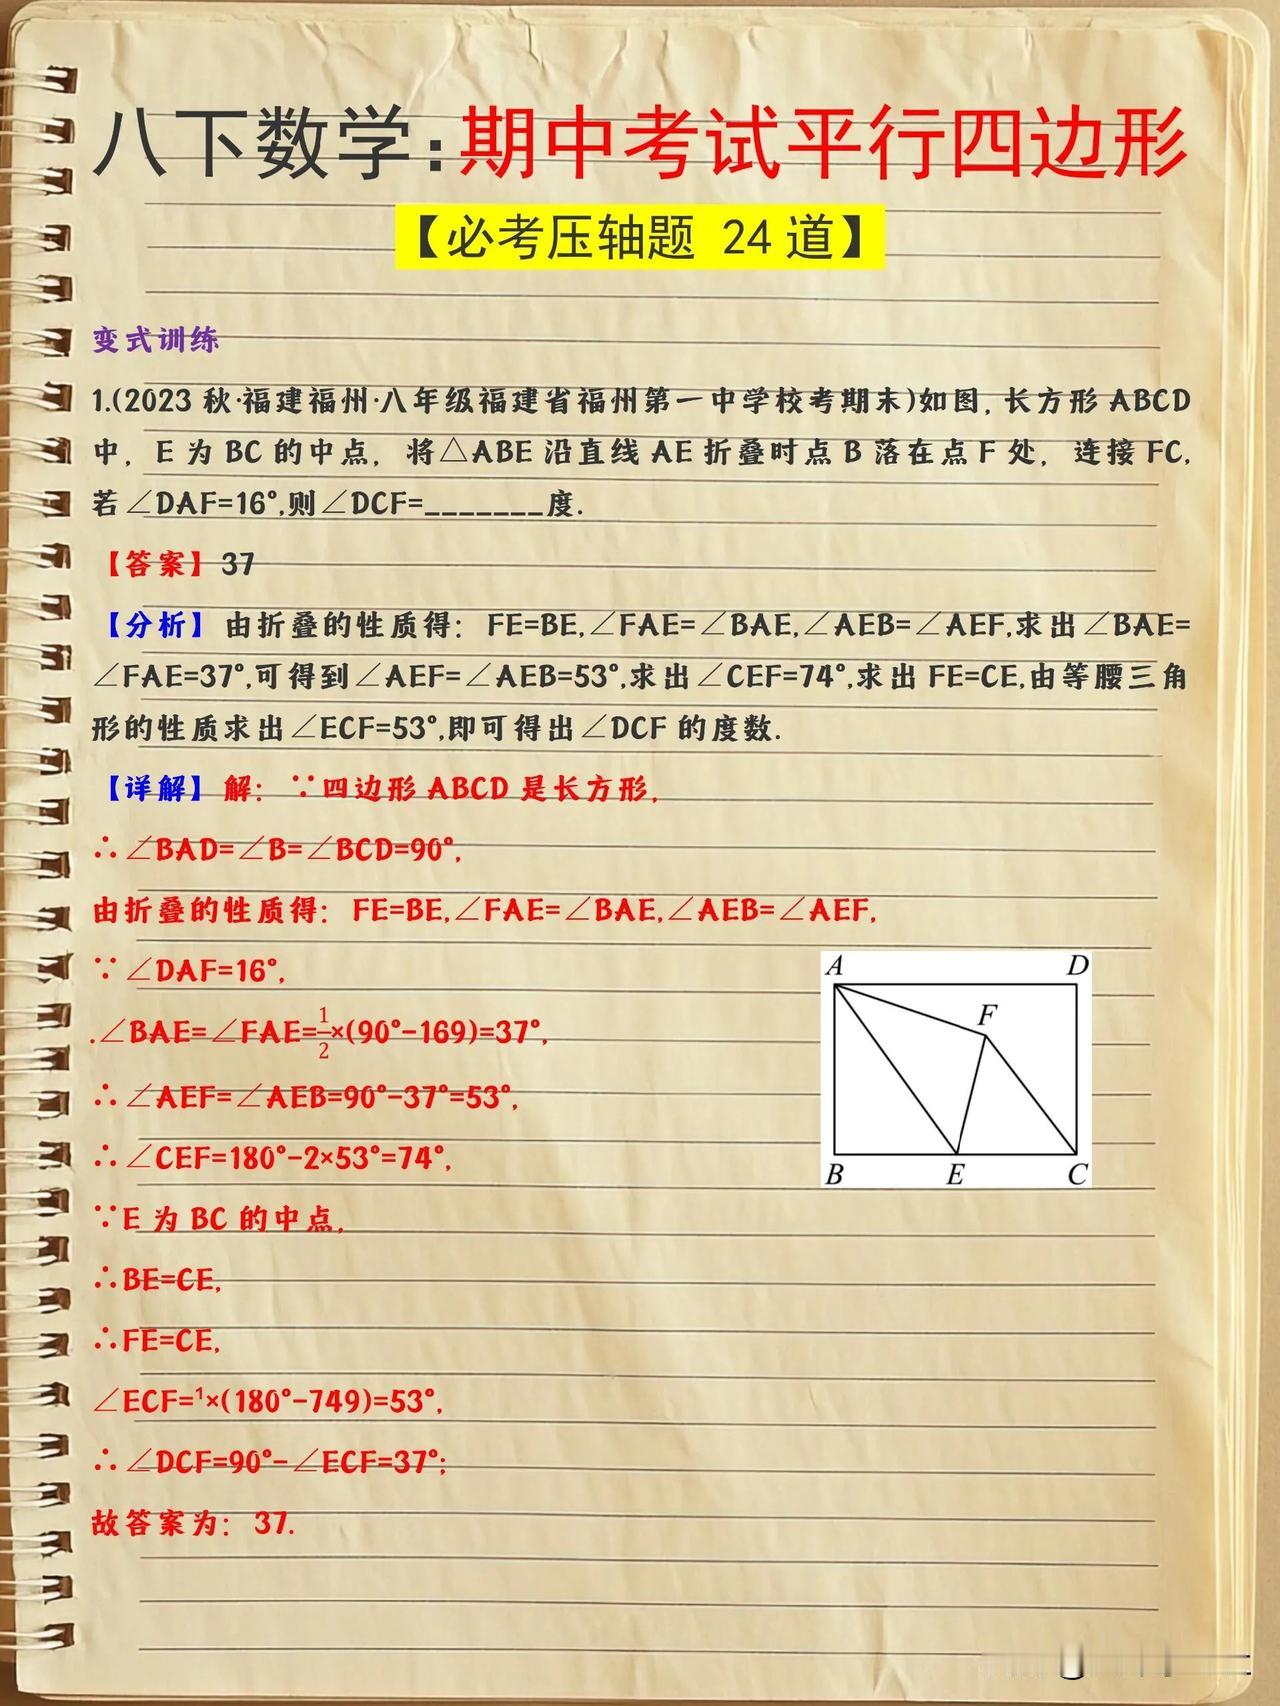 八下数学:期中考试平行四边形
【必考压轴题 24道】
变式训练
1.(2023秋·福建福州·八年级福建省福州第一中学校考期末)如图,长方形ABCD
中，E为BC的中点，将△ABE沿直线AE折叠时点B落在点F处，连接FC,
若∠DAF=16°,则∠DCF=_______度.
【答案】37
【分析】由折叠的性质得：FE=BE,∠FAE=∠BAE,∠AEB=∠AEF,求出∠BAE=
∠FAE=37°,可得到∠AEF=∠AEB=53°,求出∠CEF=74°,求出FE=CE,由等腰三角
形的性质求出∠ECF=53°,即可得出∠DCF的度数.
【详解】解：∵四边形ABCD是长方形,
∴∠BAD=∠B=∠BCD=90°,
由折叠的性质得：FE=BE,∠FAE=∠BAE,∠AEB=∠AEF,
∵∠DAF=16°,
.∠BAE=∠FAE=1/2×(90°-169)=37°,
∴∠AEF=∠AEB=90°-37°=53°,
∴∠CEF=180°-2×53°=74°,
∵E为BC的中点,
∴BE=CE,
∴FE=CE,
∠ECF=¹×(180°-749)=53°,
∴∠DCF=90°-∠ECF=37°;
故答案为：37.
A D
F
B E C